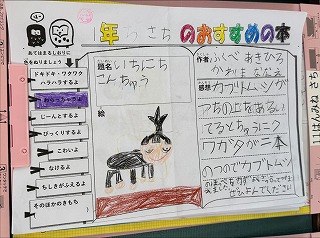 1年 さち のおすすめの本
あてはまるしおりに
色をぬりましょう
ドキドキ・ワクワク
ハラハラするよ
わらっちゃうよ
じーんとするよ
びっくりするよ
こわいよ
なけるよ
ちしきがふえるよ
そのほかのきもち
題名 いちにち
こんちゅう
絵
作者 ふくべ あきひろ
かわしま ななえ
感想 カブトムシが
つちの上をあるい
てるとちゅうにク
ワガタが二本
のつのでカブトムシ
ぜひよんでください
11はんみね さち